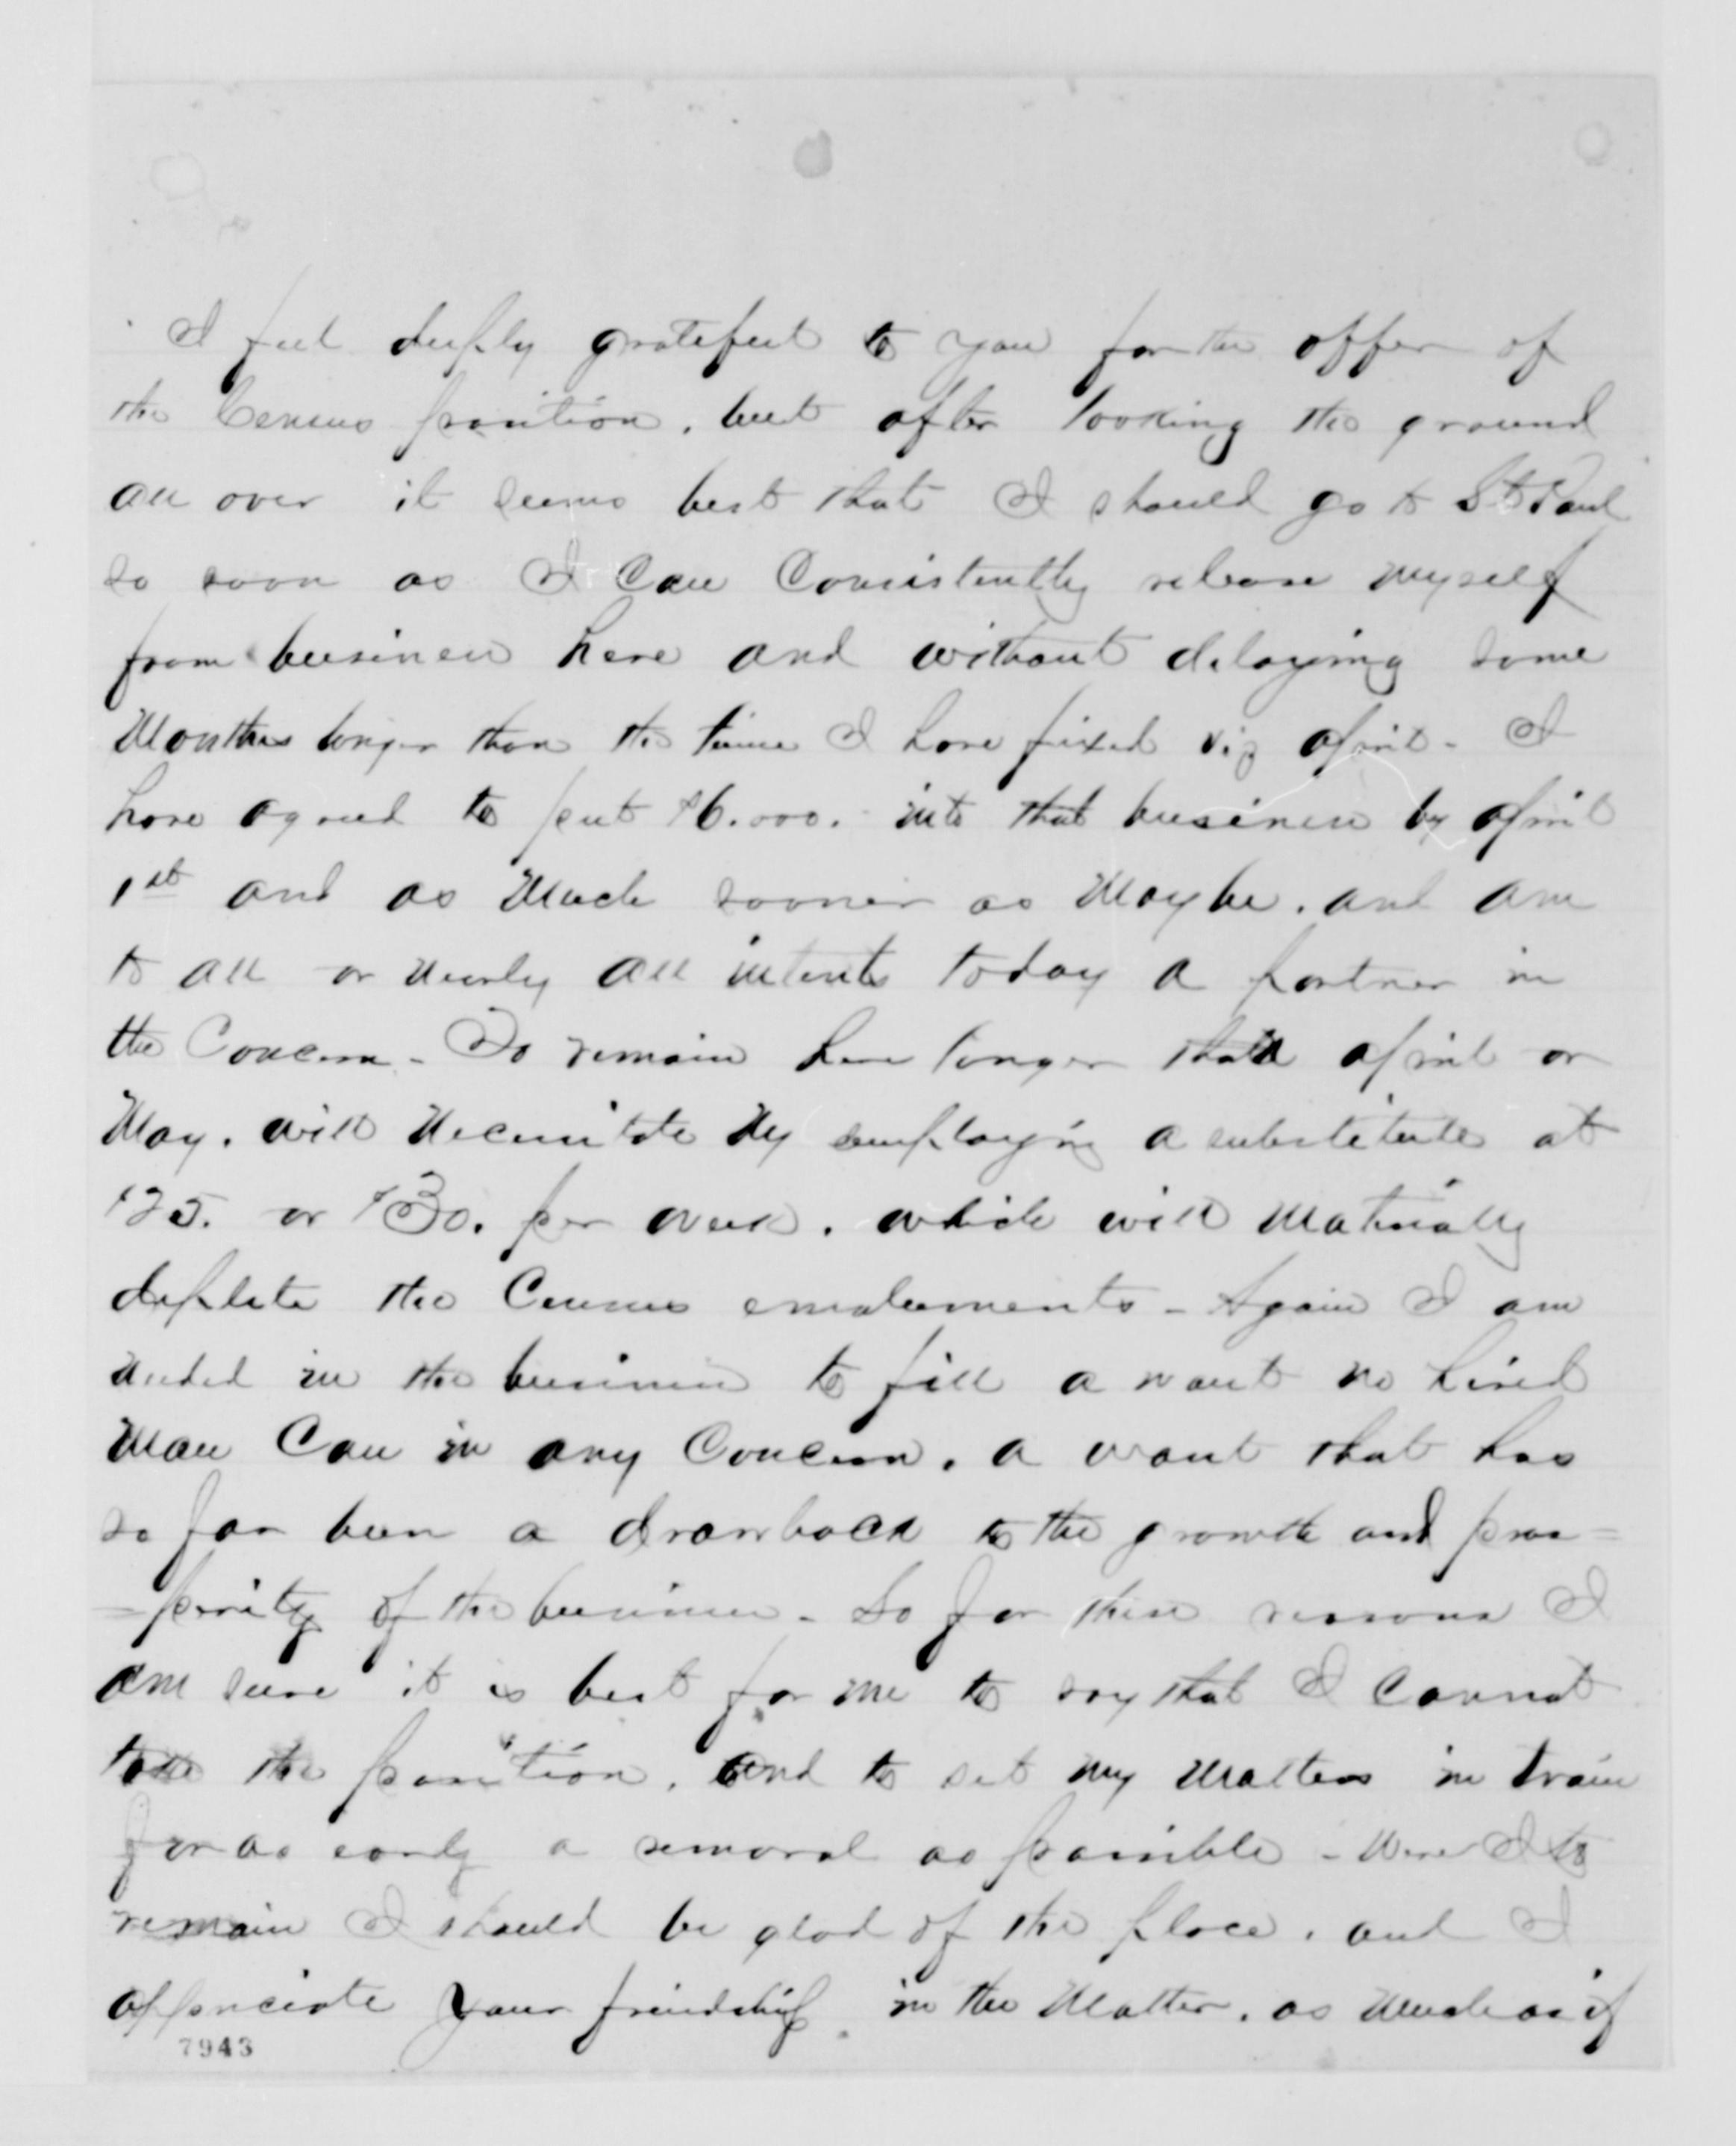 I feel deeply grateful to you for the offer of
the Census position, but after looking the ground
all over it seems best that I should go to St Paul
so soon as I can consistently release myself
from business here and without delaying some
months longer than the time I have fixed viz april - I
have agreed to put $6.000. - into that business by april
1st and as much sooner as maybe, and am
to all or nearly all intents today a partner in
the Concern - To remain here longer than april or
May, will necessitate my employing a substitute at
$25. or $30. per week, which will materially
deplete the Census emoluments - Again I am
needed in the business to fill a want no hired
man can in any Concern, a want that has
so far been a drawback to the growth and pros=
=perity of the business - So for these reasons I
am sure it is best for me to say that I cannot
take the position, and to set my matters in train
for as early a removal as possible - Were I to
remain I should be glad of the place, and I
appreciate your friendship in the matter, as much as if
7943